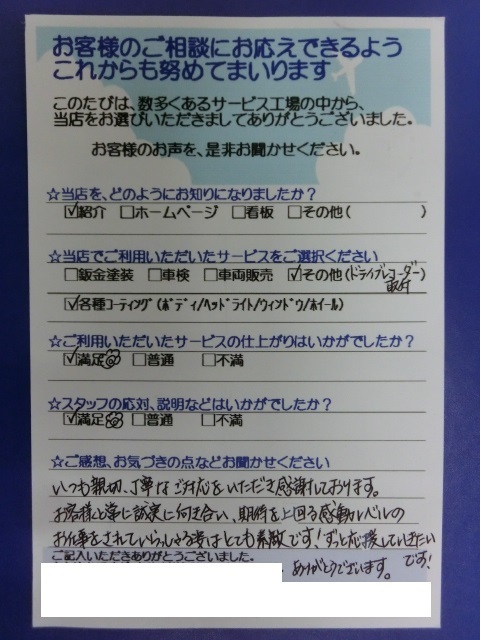 お客様のご相談にお応えできるよう
これからも努めてまいります
このたびは、数多くあるサービス工場の中から、
当店をお選びいただきましてありがとうございました。
お客様のお声を、是非お聞かせください。
☆当店を、どのようにお知りになりましたか?
☑紹介 □ホームページ □看板 □その他( )
☆当店でご利用いただいたサービスをご選択ください
□鈑金塗装 □車検 □車両販売 ☑その他(ドライブレコーダー)
取付
☑各種コーティング(ボディ/ヘッドライト/ウィンドウ/ホイール)
☆ご利用いただいたサービスの仕上がりはいかがでしたか?
☑満足 □普通 □不満
☆スタッフの応対、説明などはいかがでしたか?
☑満足 □普通 □不満
☆ご感想、お気づきの点などお聞かせください
いつも親切、丁寧なご対応をいただき感謝しております。
お客様と常に誠実に向き合い、期待を上回る感動レベルの
お仕事をされていらっしゃる姿はとても素敵です!ずっと応援していきたい
です!
ご記入いただきありがとうございました。
ありがとうございます。